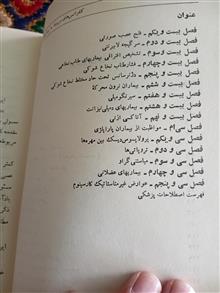 عنوان
فصل بیست و یکم - فلج عصب صورتی
فصل بیست و دوم - سرگیجه لابیرنتی
فصل بیست و سوم - تشخیص افتراقی بیماریهای طناب نخاعی
فصل بیست و چهارم - فشار طناب نخاع شوکی
فصل بیست و پنجم - دژنرسانس تحت حاد مختلط نخاع شوکی
فصل بیست و ششم - بیماری نرون محرکه
فصل بیست و هفتم - سیرنگومیلی
فصل بیست و هشتم - بیماریهای دمیلینیزانت
فصل بیست و نهم - آتاکسی ارثی
فصل سی ام - مواظبت از بیماران پاراپلژی
فصل سی و یکم - پرولاپسوس دیسک بین مهره‌ها
فصل سی و دوم - نروپاتی‌ها
فصل سی و سوم - میاستنی گراو
فصل سی و چهارم - بیماریهای عضلانی
فصل سی و پنجم - عوارض غیرمتاستاتیک کارسینوم
فهرست اصطلاحات پزشکی